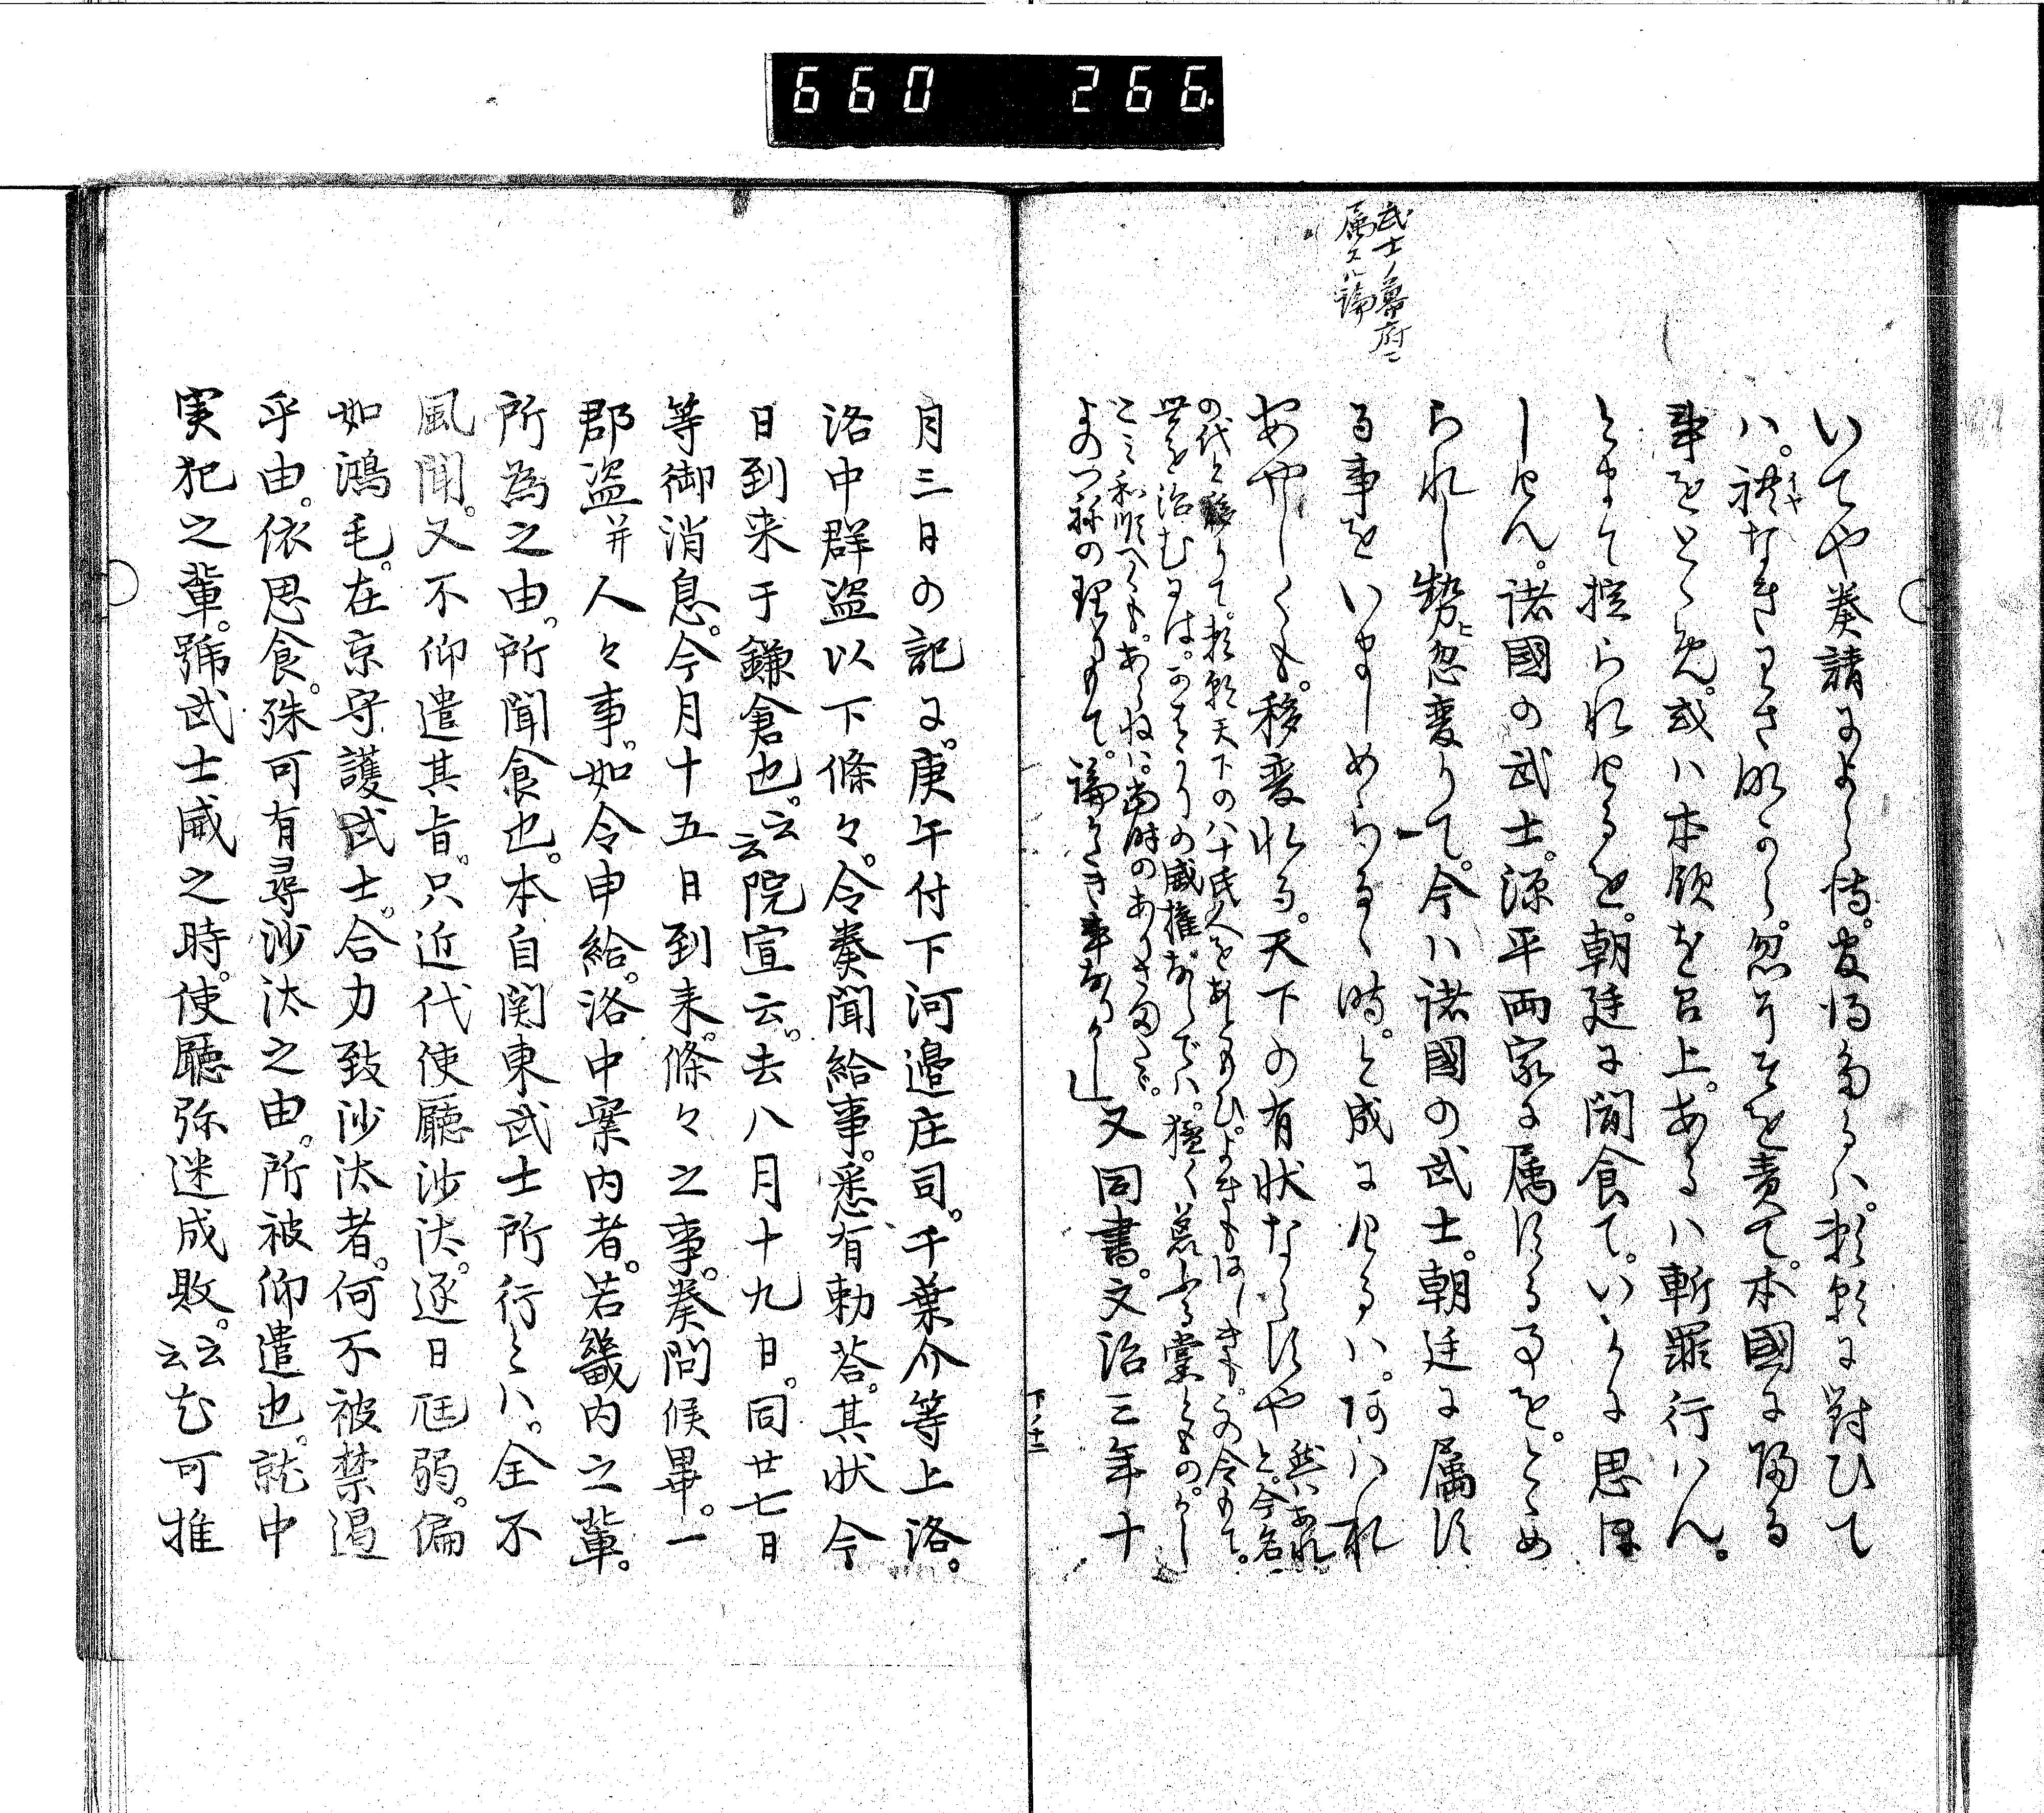 660 266
武士ノ幕府ニ
属スル論
いてや奏請によらす。官得たるハ。頼朝に對ひて
ハ。礼なきわさ
忽そを責て。本國に帰る
事をとゝめ。或ハ本領を召上。あるハ斬罪行ハん。
とまて掟られけるを。朝廷に聞食て。いかに思ほ
しけん。諸國の武士。源平両家に属する事を。とゝめ
られし勢忽変りて。今ハ諸國の武士。朝廷に属す
る事をいましめらるゝ時。と成にけるハ。阿ハれ
あやしくも。移変れる。天下の有状ならすや
然ハあれと。今名
の代と移りて。頼朝天下の八十氏人を
世を治むには。
の威権なしでハ。
当時のありさま
よのつねの理をもて。論ふへき事なりかし
又同書。文治三年十
下ノ十二
月三日の記に。庚午付下河邊庄司。千葉介等上洛。
洛中群盗以下條々。令奏聞給事。悉有勅答。其状今
日到来于鎌倉也。云云院宣云。去八月十九日。同廿七日
等御消息。今月十五日到来。條々之事。奏問候畢。一
郡盗并人々事。如令申給。洛中案内者。若畿内之輩。
所為之由。所聞食也。本自関東武士所行とハ。全不
風聞。又不仰遣其旨。只近代使廳沙汰。逐日尫弱。偏
如鴻毛。在京守護武士。合力致沙汰者。何不被禁遏
乎由。依思食。殊可有尋沙汰之由。所被仰遣也。就中
実犯之輩。號武士威之時。使廳弥迷成敗。云云むむ可推